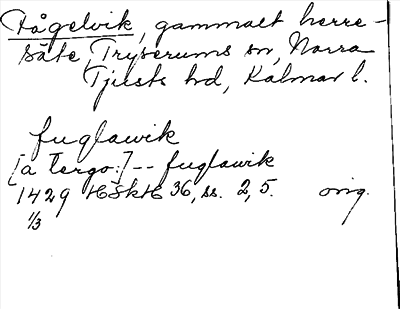 Fågelvik, gammalt herre-
säte, Tryserums sn, Norra
Tjusts hd, Kalmar l.
fuglawik
[a tergo:] -- fuglawik
1429 HSkH 36, ss. 2, 5. orig.
1/3